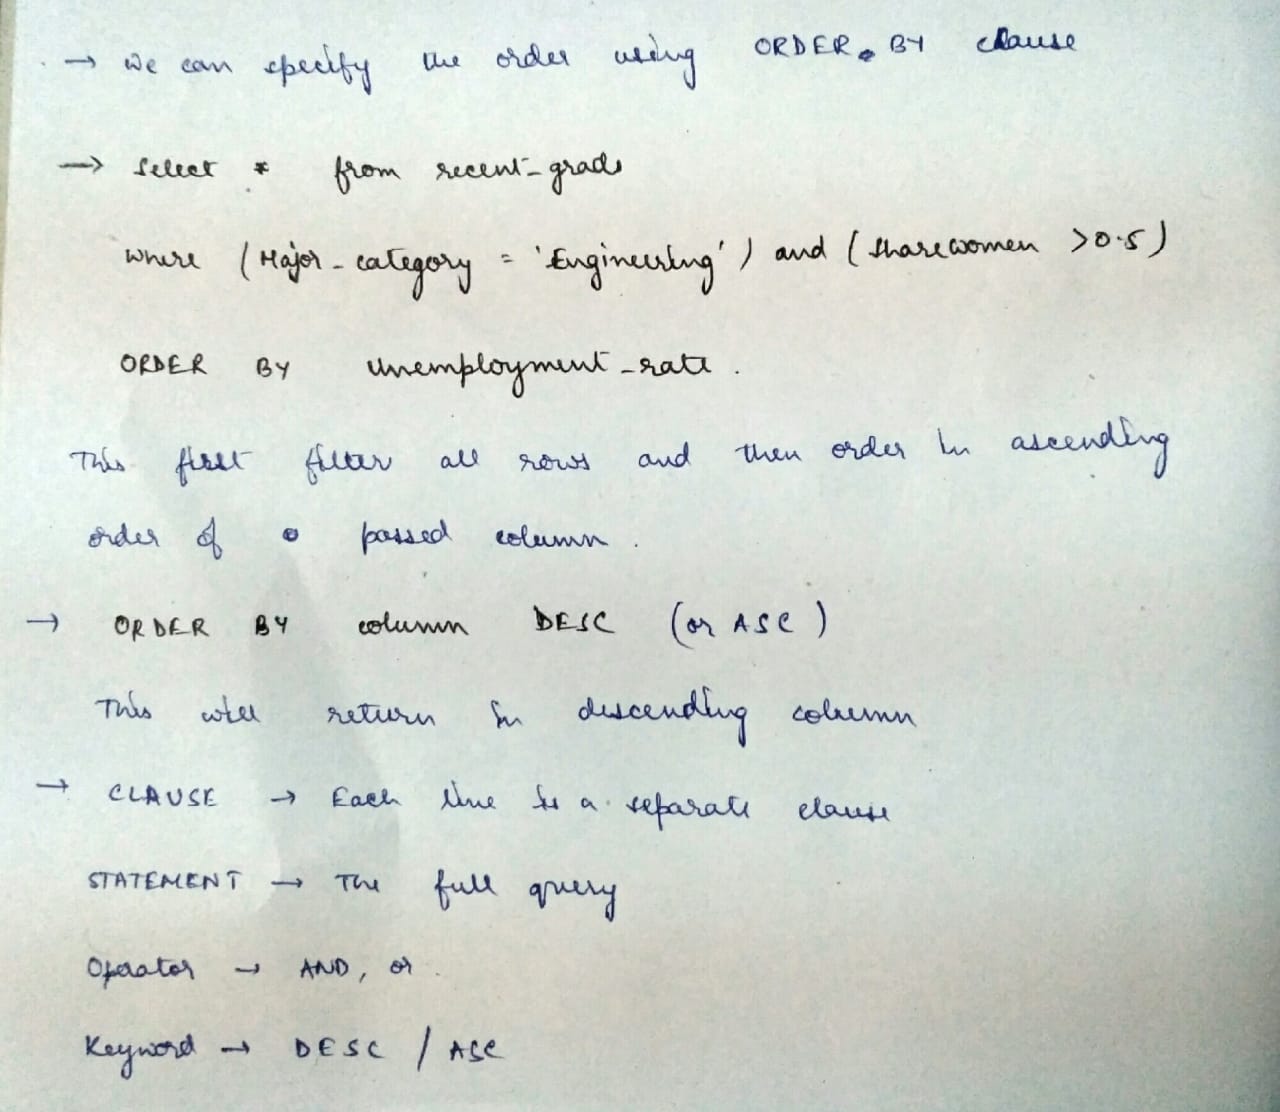 → We can specify the order using ORDER BY clause
→ Select * from recent_grads
where (Major_category = 'Engineering') and (sharewomen >0.5)
ORDER BY unemployment_rate.
This first filter all rows and then order in ascending
order of passed column.
→ ORDER BY column DESC (or ASC)
This will return in descending column
→ CLAUSE → Each line is a separate clause
STATEMENT → The full query
Operator → AND, or.
Keyword → DESC / ASC